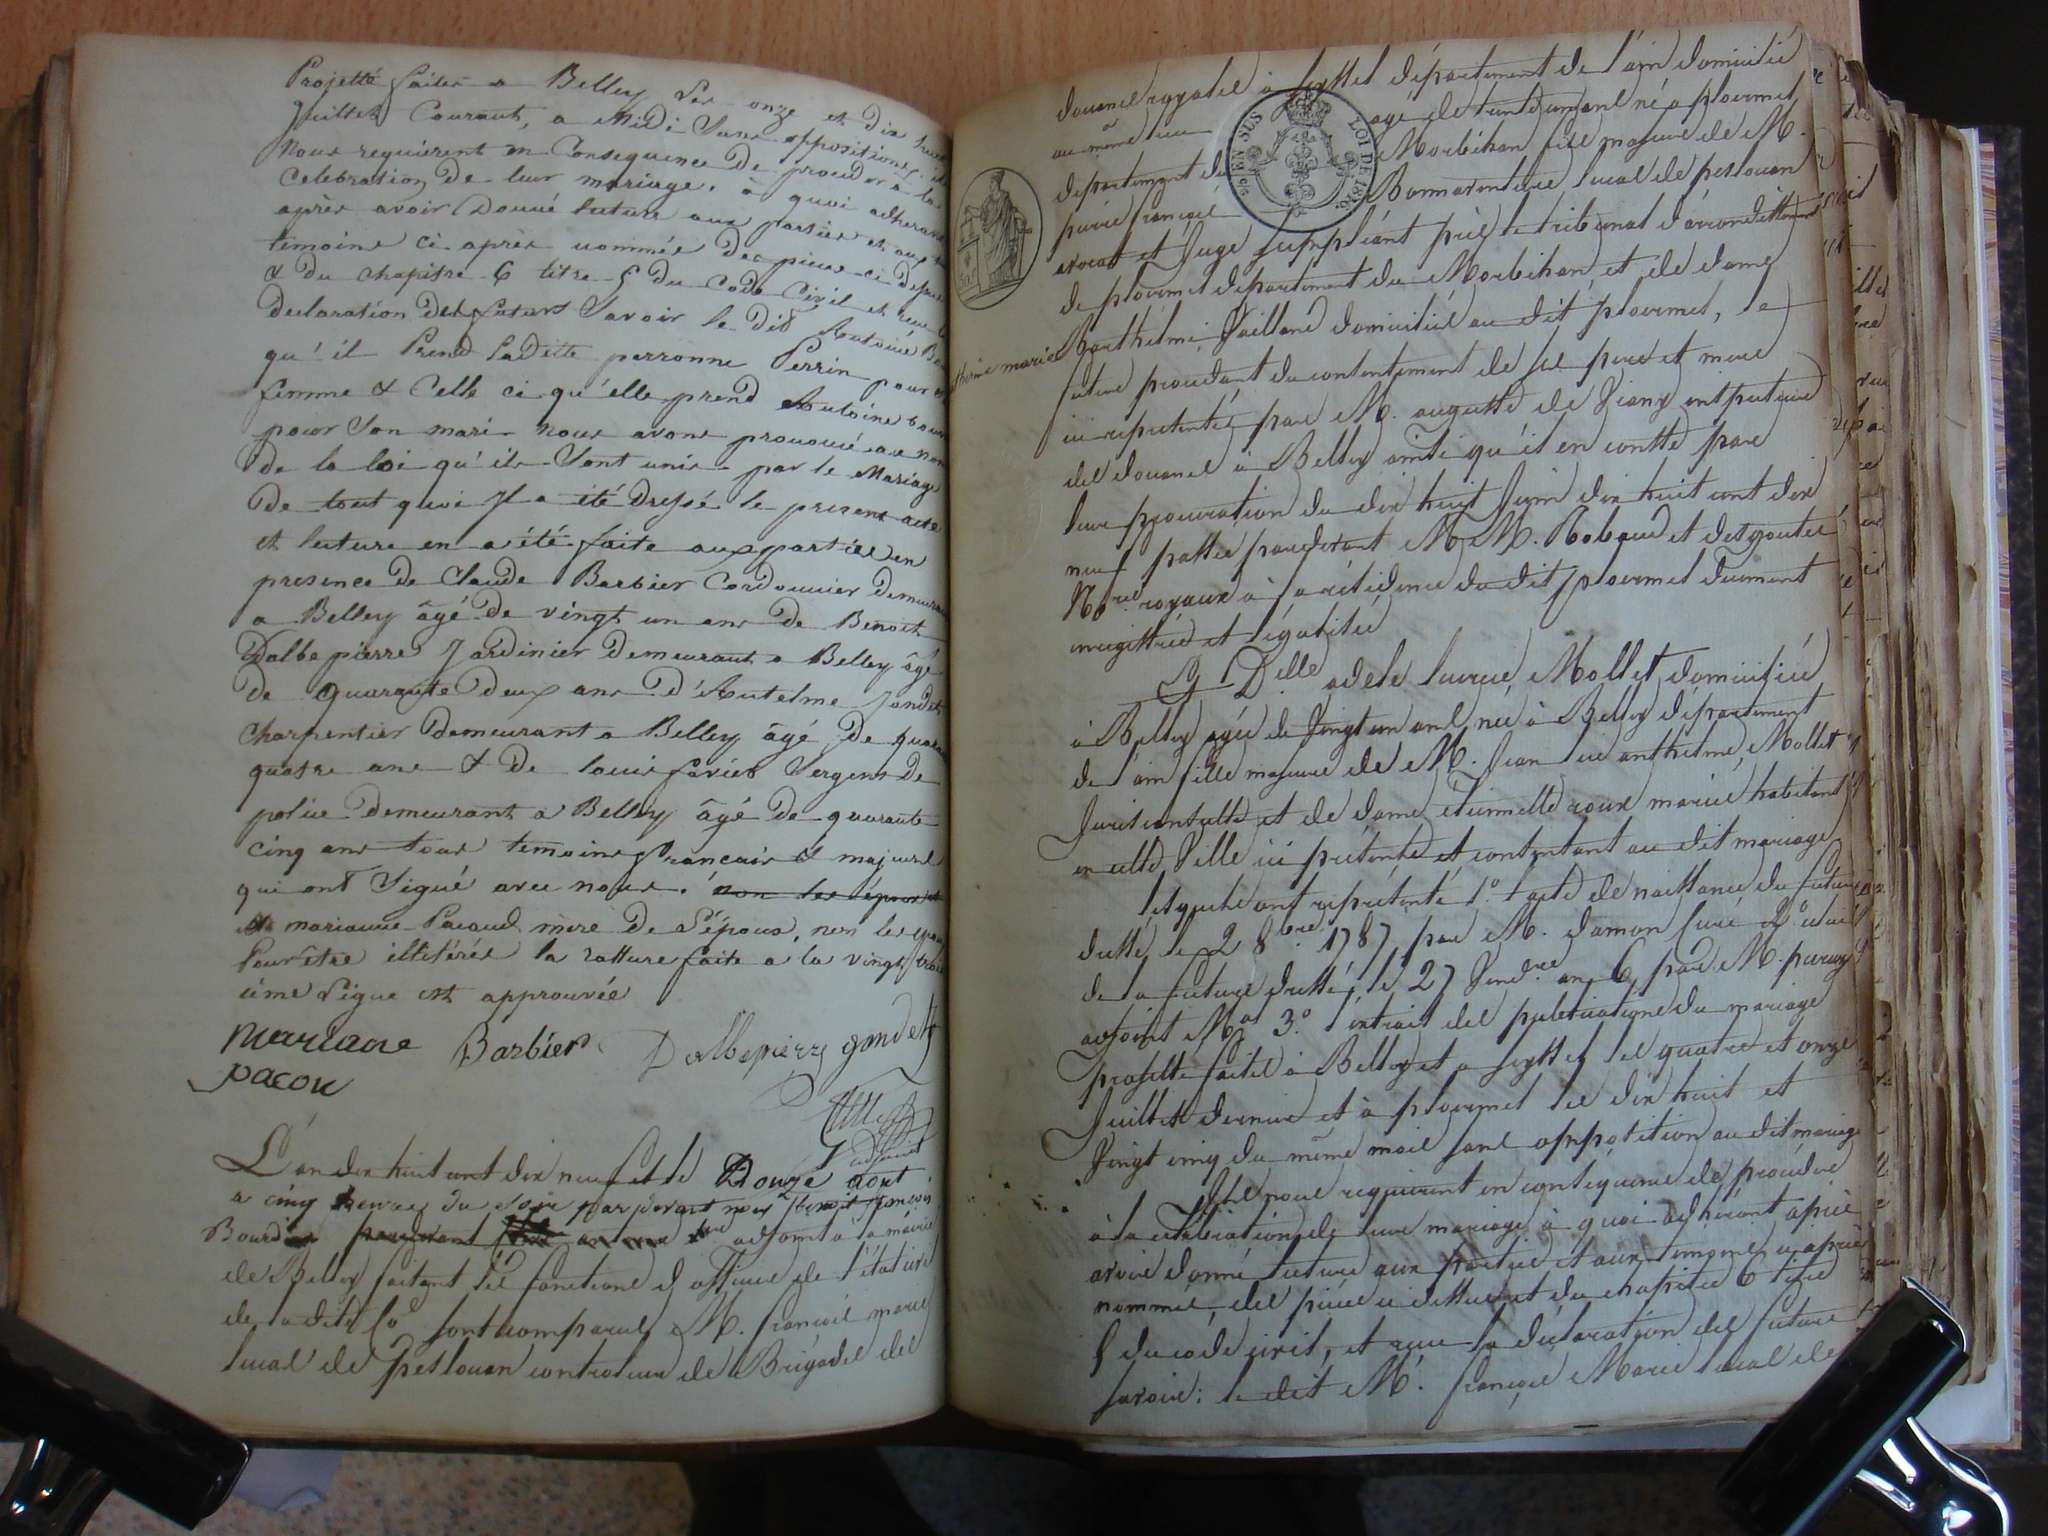 Projetté faites a Belley les onze et dix huit
Juillet Courant, a Midi Sans opposition, et
Nous requierent en Consequence De proceder à la
Celebration De leur mariage, à quoi adherant
après avoir Donné lecture aux parties et aux
temoins ci après nommés Des pieces ci Dessus
& Du chapitre 6 titre 5 Du Code Civil et reçu la
Declaration Des futurs Savoir le Dit Antoine
qu'il Prend laDitte perronne Perrin pour
femme & Celle ci qu'elle prend Antoine
pour Son mari Nous avons prononcé au nom
De la loi qu'ils Sont unis par le Mariage
De tout quoi Il a été Dressé le present acte
et lecture en a été faite aux parties en
presence De Claude Barbier Cordonnier Demeurant
a Belley âgé De vingt un ans De Benoit
Dalbepierre Jardinier Demeurant a Belley âgé
De quarante Deux ans D'Antelme Jondet
Charpentier Demeurant a Belley âgé De quarante
quatre ans & De louis Sergent De
police Demeurant a Belley âgé De quarante
cinq ans tous temoins français & majeurs
qui ont Signé avec nous. non les époux
et marianne Pacoud mère De l'époux, non les époux
Pour être illitérés la ratture faite a la vingt trois
ième ligne est approuvée
Mariane Barbier Dallbepierre gondet
pacou
adjoint
L'an dix huit cent dix neuf et le Douze aout
a cinq heures du Soir pardevant nous Benoit françois
Bourdin pardevant adjoint à la mairie
de Belley faisant les fonctions d'officier de l'état civil
de la dite Co. sont comparus, M. françois marie
lucas de peslouan controleur de Brigades des
douanes royales à Seyssel département de l'ain domicilié
au même lieu agé de trente un ans né a ploermel
département du Morbihan fils majeur de M.
pierre françois Bonnaventure lucas de peslouan
avocat et Juge suppléant près le tribunal d'arrondissement
de ploermel département du Morbihan et de dame
Barthelmi Vaillant domiciliés au dit ploermel, le
futur procedant du consentement de ses pere et mere
ici representés par M. auguste de Siany inspecteur
des douanes à Belley ainsi qu'il en conste par
leur procuration du dix huit Juin dix huit cent dix
neuf passée pardevant M.M. Robaud et desgoutes
Nores royaux à la résidence du dit ploermel duement
enregistrée et légalisée
Et Delle adele lucrece Mollet domiciliée
à Belley agée de vingt un ans, née à Belley département
de l'ain fille majeure de M. Jean anthelme Mollet
Jurisconsulte et de dame etiennette roux mariés habitant
en cette Ville ici présents et consentant au dit mariage
lesquels ont représenté 1.o l'acte de naissance du futur
dressé le 2 8bre 1787 par M. damon Curé 2.o celui
de la future dressé le 27 Vend.re an 6, par M. 
adjoint Mal 3.o l'extrait des publications du mariage
projetté faites à Belley et a Seyssel les quatre et onze
Juillet dernier et à ploermel les dix huit et
Vingt cinq du même mois sans opposition au dit mariage
Ils nous requierent en conséquence de procéder
à la célébration de leur mariage, à quoi adhérant après
avoir donné lecture aux parties et aux temoins ci après
nommés, des pieces ci dessus et du chapitre 6 titre
5 du code civil, et reçu la déclaration des futurs
savoir: le dit M. françois Marie lucas de
Anthelme marie
LOI DE 1816
EN SUS